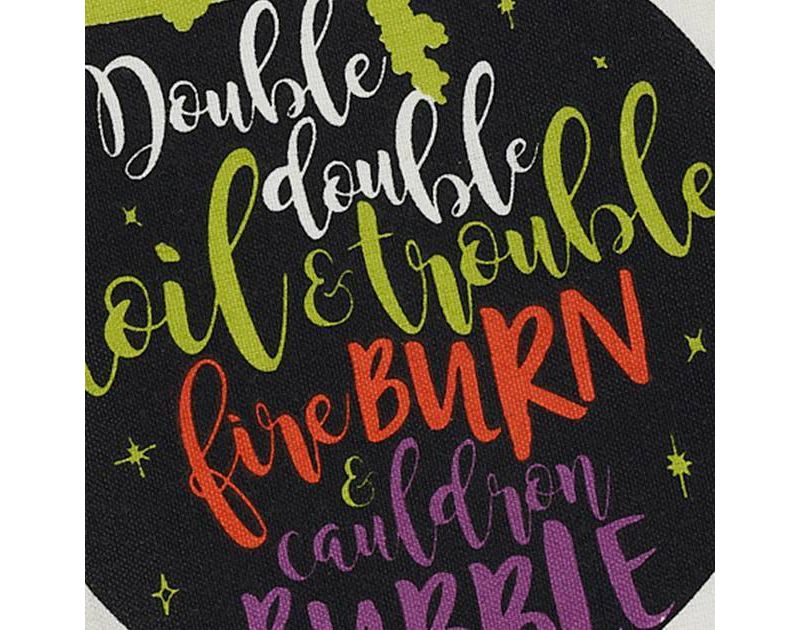 Double
double
toil & trouble
fire BURN
&
cauldron
BUBBLE